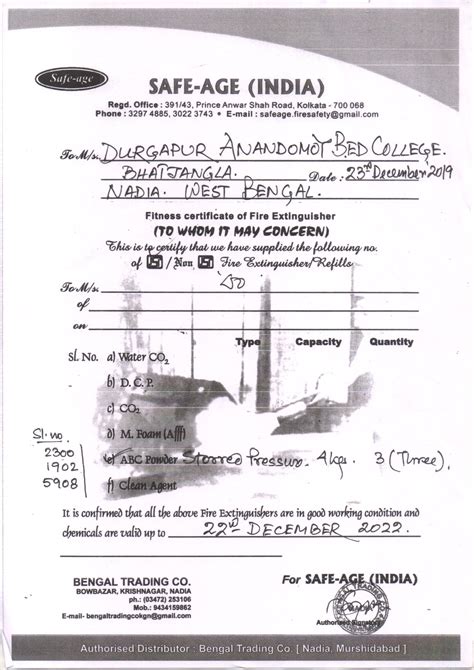 Safe-age
SAFE-AGE (INDIA)
Regd. Office : 391/43, Prince Anwar Shah Road, Kolkata - 700 068
Phone : 3297 4885, 3022 3743 • E-mail : safeage.firesafety@gmail.com
To M/s. DURGAPUR ANANDOMOT BED COLLEGE.
BHATJANGLA. Date : 23rd December 2019
NADIA. WEST BENGAL.
Fitness certificate of Fire Extinguisher
(TO WHOM IT MAY CONCERN)
This is to certify that we have supplied the following no.
of ISI / Non ISI Fire Extinguisher/Refills
To M/s.
of
on
Type Capacity Quantity
Sl. No. a) Water CO2
b) D. C. P.
c) CO2
d) M. Foam (Afff)
Sl. no
2300
1902
5908
e) ABC Powder Stored Pressure. 4kgs. 3 (Three).
f) Clean Agent
It is confirmed that all the above Fire Extinguishers are in good working condition and
chemicals are valid up to 22nd DECEMBER 2022.
BENGAL TRADING CO.
BOWBAZAR, KRISHNAGAR, NADIA
ph.: (03472) 253106
Mob.: 9434159862
E-mail- bengaltradingcokgn@gmail.com
For SAFE-AGE (INDIA)
Authorised Signatory
Authorised Distributor : Bengal Trading Co. [ Nadia, Murshidabad ]